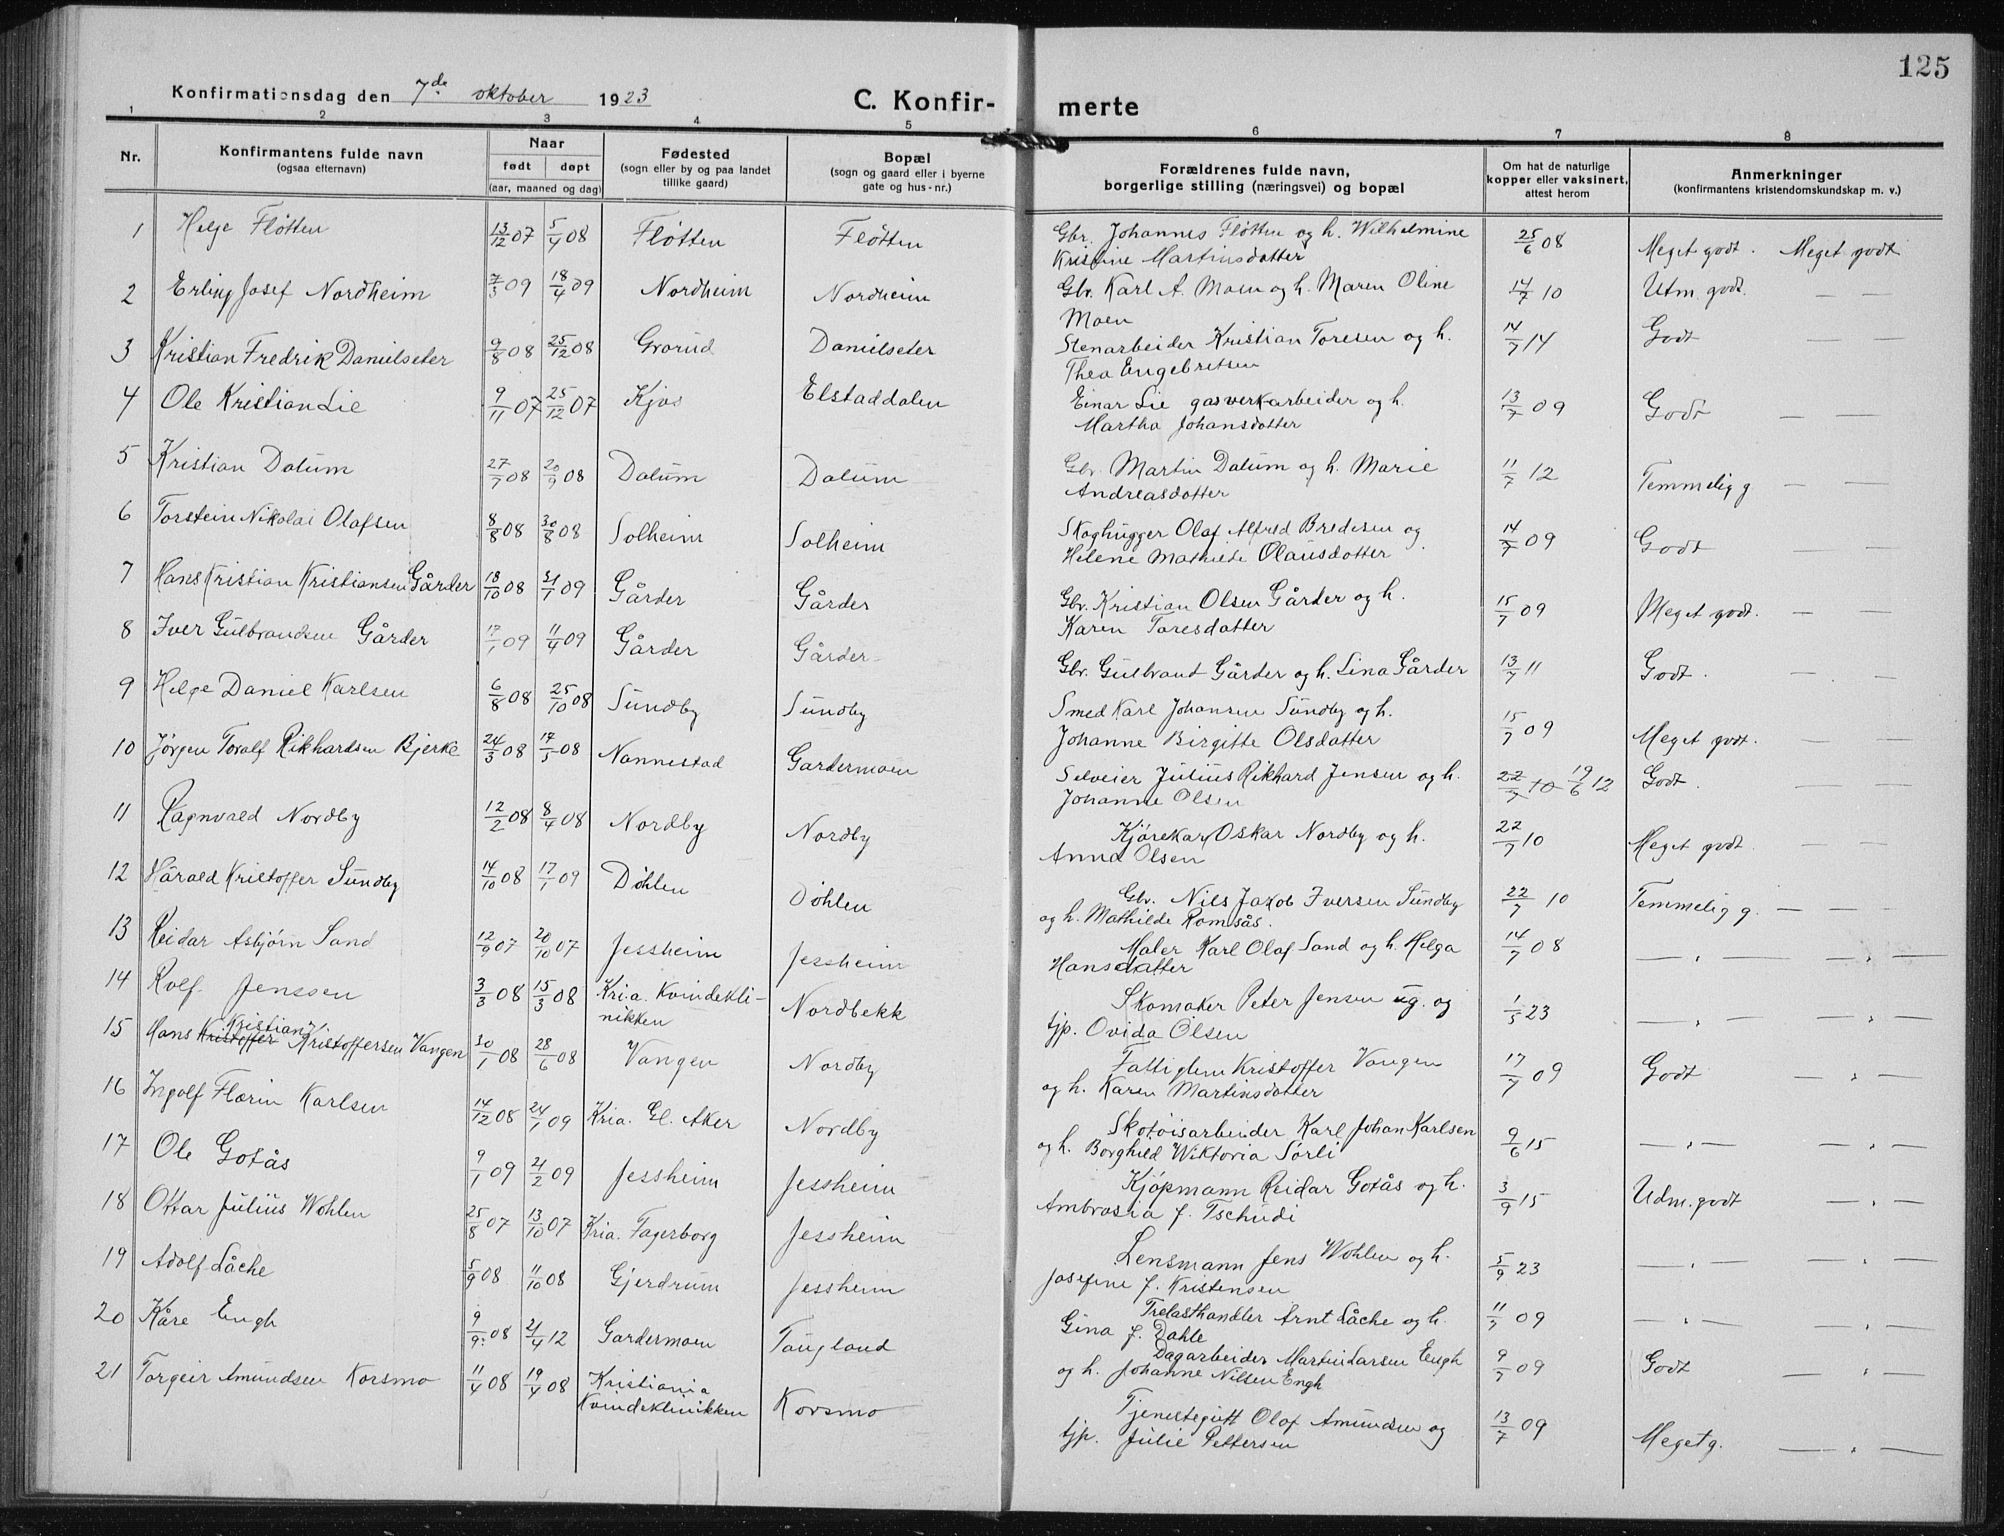 125
Konfirmationsdag den 7de oktober 1923
C. Konfir- merte
1 2 3 4 5 6 7 8
Nr.
Konfirmantens fulde navn
(ogsaa efternavn)
Naar
født døpt
(aar, maaned og dag)
Fødested
(sogn eller by og paa landet
tillike gaard)
Bopæl
(sogn og gaard eller i byerne
gate og hus-nr.)
Forældrenes fulde navn,
borgerlige stilling (næringsvei) og bopæl
Om hat de naturlige
kopper eller vaksinert,
attest herom
Anmerkninger
(konfirmantens kristendomskundskap m. v.)
1 Helge Fløtten 13/12 07 5/4 08 Fløtten Fløtten Gbr. Johannes Fløtten og h. Wilhelmine 25/6 08 Meget godt. Meget godt
Kristine Martinsdotter
2 Erling Josef Nordheim 7/3 09 18/4 09 Nordheim Nordheim Gbr. Karl A. Moen og h. Maren Oline 14/7 10 Utm. godt. — —
Moen
3 Kristian Fredrik Danielseter 9/8 08 25/12 08 Grorud Danielseter Stenarbeider Kristian Toresen og h. 14/7 14 Godt — —
Thea Engebretsen
4 Ole Kristian Lie 9/11 07 25/12 07 Kjos Elstaddalen Einar Lie gasverkarbeider og h. 13/7 09 Godt — —
Martha Johansdotter
5 Kristian Dalum 27/7 08 20/9 08 Dalum Dalum Gbr. Martin Dalum og h. Marie 11/7 12 Temmelig g — —
Andreasdotter
6 Torstein Nikolai Olafsen 8/8 08 30/8 08 Solheim Solheim Skoghugger Olaf Alfred Bredesen og 14/7 09 Godt —
Helene Mathilde Olausdotter
7 Hans Kristian Kristiansen Gårder 18/10 08 31/1 09 Gårder Gårder Gbr. Kristian Olsen Gårder og h. 15/7 09 Meget godt. — —
Karen Toresdatter
8 Iver Gulbrandsen Gårder 17/1 09 11/4 09 Gårder Gårder Gbr. Gulbrand Gårder og h. Lina Gårder 13/7 11 Godt. — —
9 Helge Daniel Karlsen 6/8 08 25/10 08 Sundby Sundby Smed Karl Johansen Sundby og h. 15/7 09 Meget godt. — —
Johanne Birgitte Olsdatter
10 Jørgen Toralf Rikhardsen Bjerke 24/3 08 17/5 08 Nannestad Gardermoen Selveier Julius Rikhard Jensen og h. 22/7 10 19/6 12 Godt. — —
Johanne Olsen
11 Ragnvald Nordby 12/2 08 8/4 08 Nordby Nordby Kjørekar Oskar Nordby og h. 22/7 10 Meget godt. — —
Anna Olsen
12 Harald Kristoffer Sundby 14/10 08 17/1 09 Døhlen Døhlen Gbr. Nils Jakob Iversen Sundby 22/7 10 Temmelig g. — —
og h. Mathilde Romsås.
13 Reidar Asbjørn Sand 12/9 07 20/10 07 Jessheim Jessheim Maler Karl Olaf Sand og h. Helga 14/7 08 — „ — — „ —
Hansdatter
14 Rolf Jenssen 3/3 08 15/3 08 Kri.a. Kvindekli- Nordbekk Skomaker Peter Jensen ug. og 1/5 23 — „ — — „ —
nikken tjp. Ovida Olsen
15 Hans Kristoffer Kristian Kristoffersen Vangen 30/1 08 28/6 08 Vangen Nordby Fattiglem Kristoffer Vangen 17/7 09 Godt — „ —
og h. Karen Martinsdotter
16 Ingolf Florin Karlsen 14/12 08 24/1 09 Kria. Gl. Aker Nordby Skotøisarbeider Karl Johan Karlsen 9/6 15 — „ — — „ —
og h. Borghild Wiktoria Sørli
17 Ole Gotås 9/1 09 21/2 09 Jessheim Jessheim Kjøpmann Reidar Gotås og h. 3/9 15 Udm. godt — „ —
Ambrosia f. Tschudi
18 Ottar Julius Wohlen 25/8 07 13/10 07 Kria. Fagerborg Jessheim Lensmann Jens Wohlen og h. 5/9 23 — „ — — „ —
Josefine f. Kristensen
19 Adolf Låche 5/9 08 11/10 08 Gjerdrum Jessheim Trelasthandler Arnt Låche og h. 11/7 09 — „ — — „ —
Gina f. Dahle
20 Kåre Engh 9/9 08 21/4 12 Gardermoen Taugland Dagarbeider Martin Larsen Engh 9/7 09 Godt — „ —
og h. Johanne Nilsen Engh
21 Torgeir Amundsen Korsmo 11/4 08 19/4 08 Kristiania Korsmo Tjenestegutt Olaf Amundsen og 13/7 09 Meget g. — „ —
Kvindeklinikken tjp. Julie Pettersen